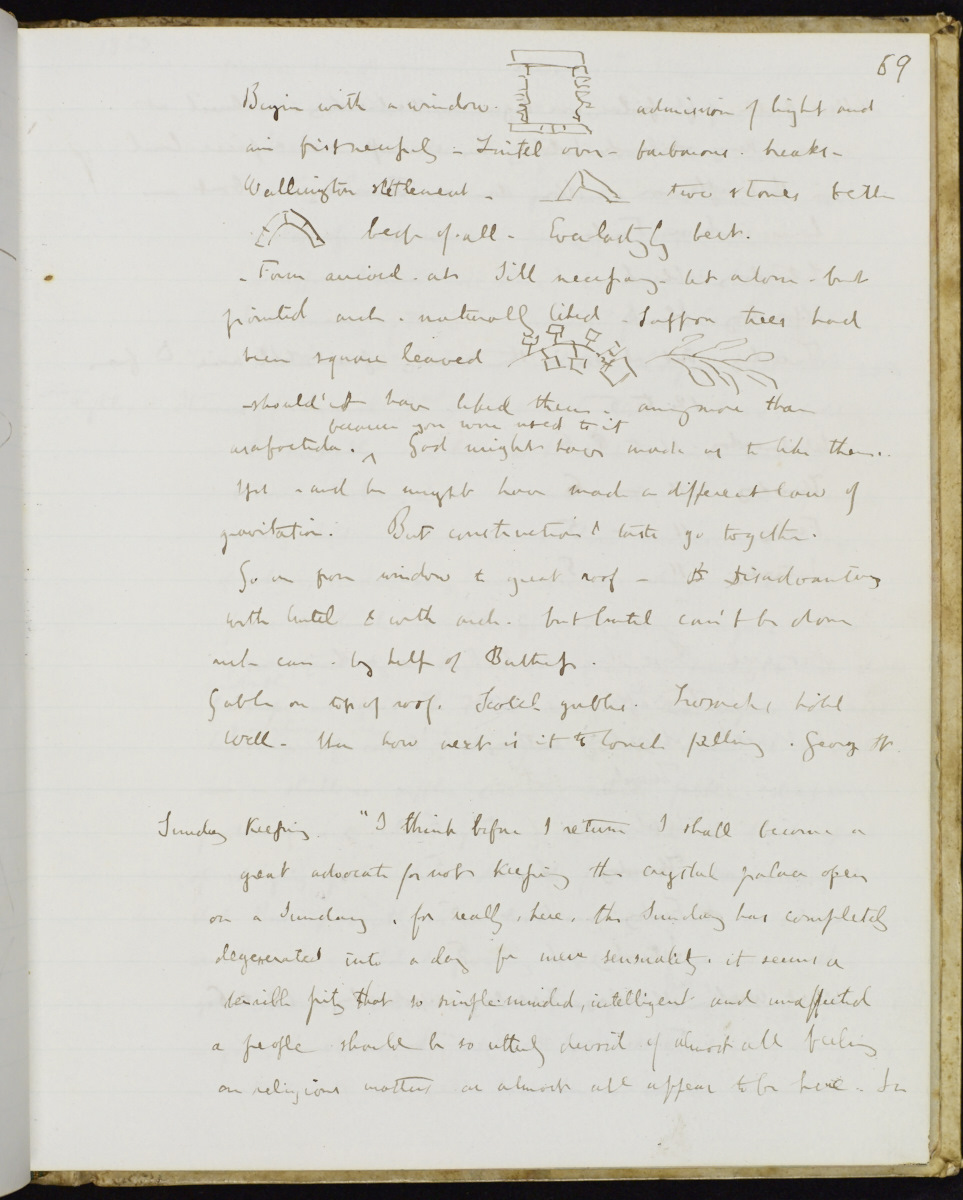 69
Begin with a window. admission of light and
air first necessity - Lintel over - barbarous. breaks -
Wallington settlement - two stones better
best of all - Everlastingly best.
- Form arrived at. Still necessary - let alone - but
pointed arch - naturally liked - Suppose trees had
been square leaved
- should'nt have liked them - any more than
asafoetida. because you were used to it God might have made us to like them.
Yes - and he might have made a different law of
gravitation. But construction & taste go together.
Go on from window to great roof - Disadvantage
with lintel & with arch. but lintel can't be done
arch can - by help of Buttress.
Gable on top of roof. Scotch gables. hotel
Well - how next is it to . George St.
Sunday Keeping. "I think before I return I shall become a
great advocate for not keeping the crystal palace open
on a Sunday, for really, here, the Sunday has completely
degenerated into a day for mere sensuality. it seems a
terrible pity that so simple-minded, intelligent and unaffected
a people should be so utterly devoid of almost all feeling
on religious matters as almost all appear to be here - In